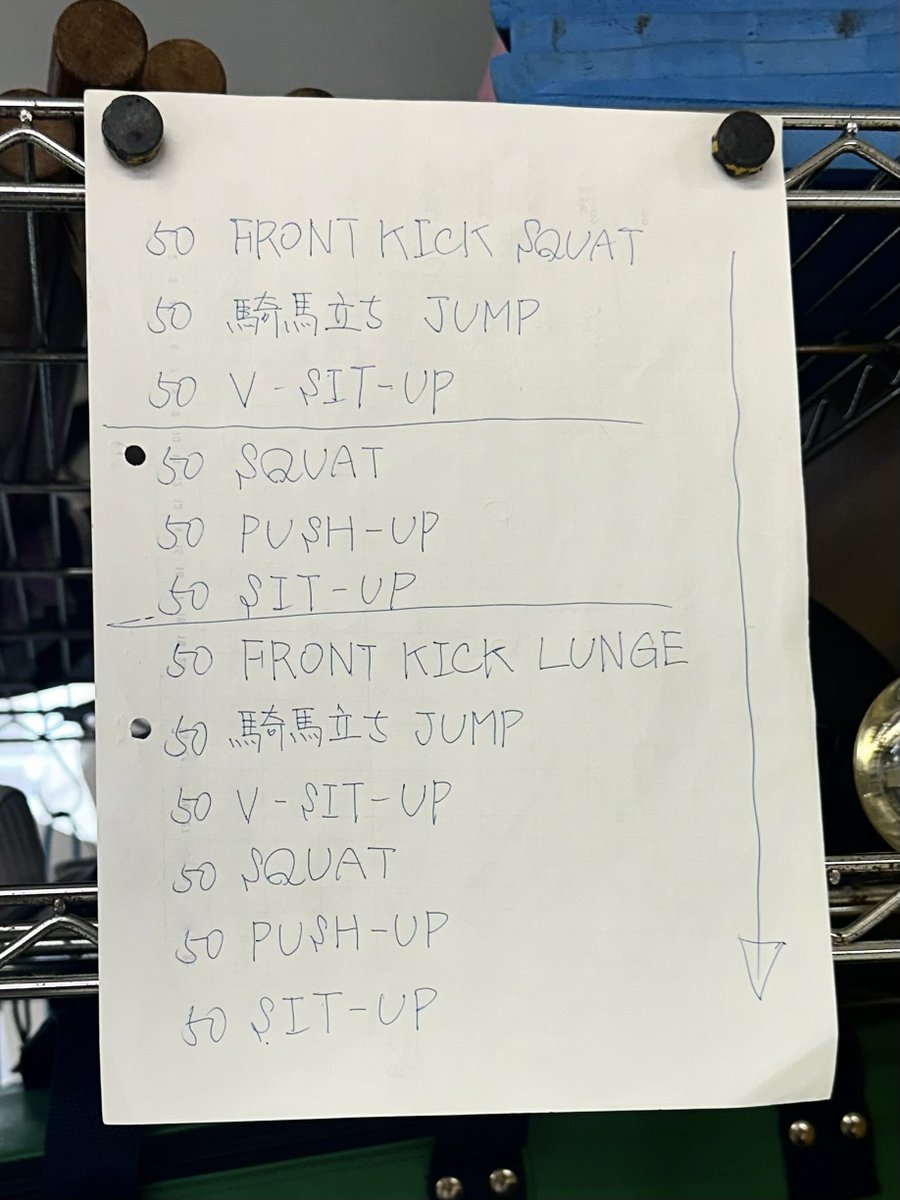 50 FRONT KICK SQUAT
50 騎馬立ち JUMP
50 V-SIT-UP
50 SQUAT
50 PUSH-UP
50 SIT-UP
50 FRONT KICK LUNGE
50 騎馬立ち JUMP
50 V-SIT-UP
50 SQUAT
50 PUSH-UP
50 SIT-UP